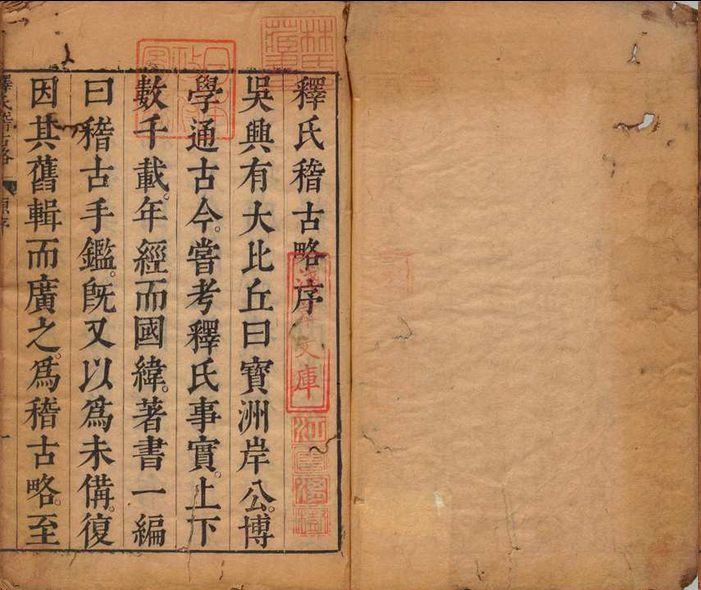 釋氏稽古略序
吳興有大比丘曰寳洲岸公。博
學通古今。嘗考釋氏事實。上下
數千載。年經而國緯。著書一編
曰稽古手鑑。旣又以爲未備。復
因其舊輯而廣之。爲稽古略。至
釋氏稽古略
文庫